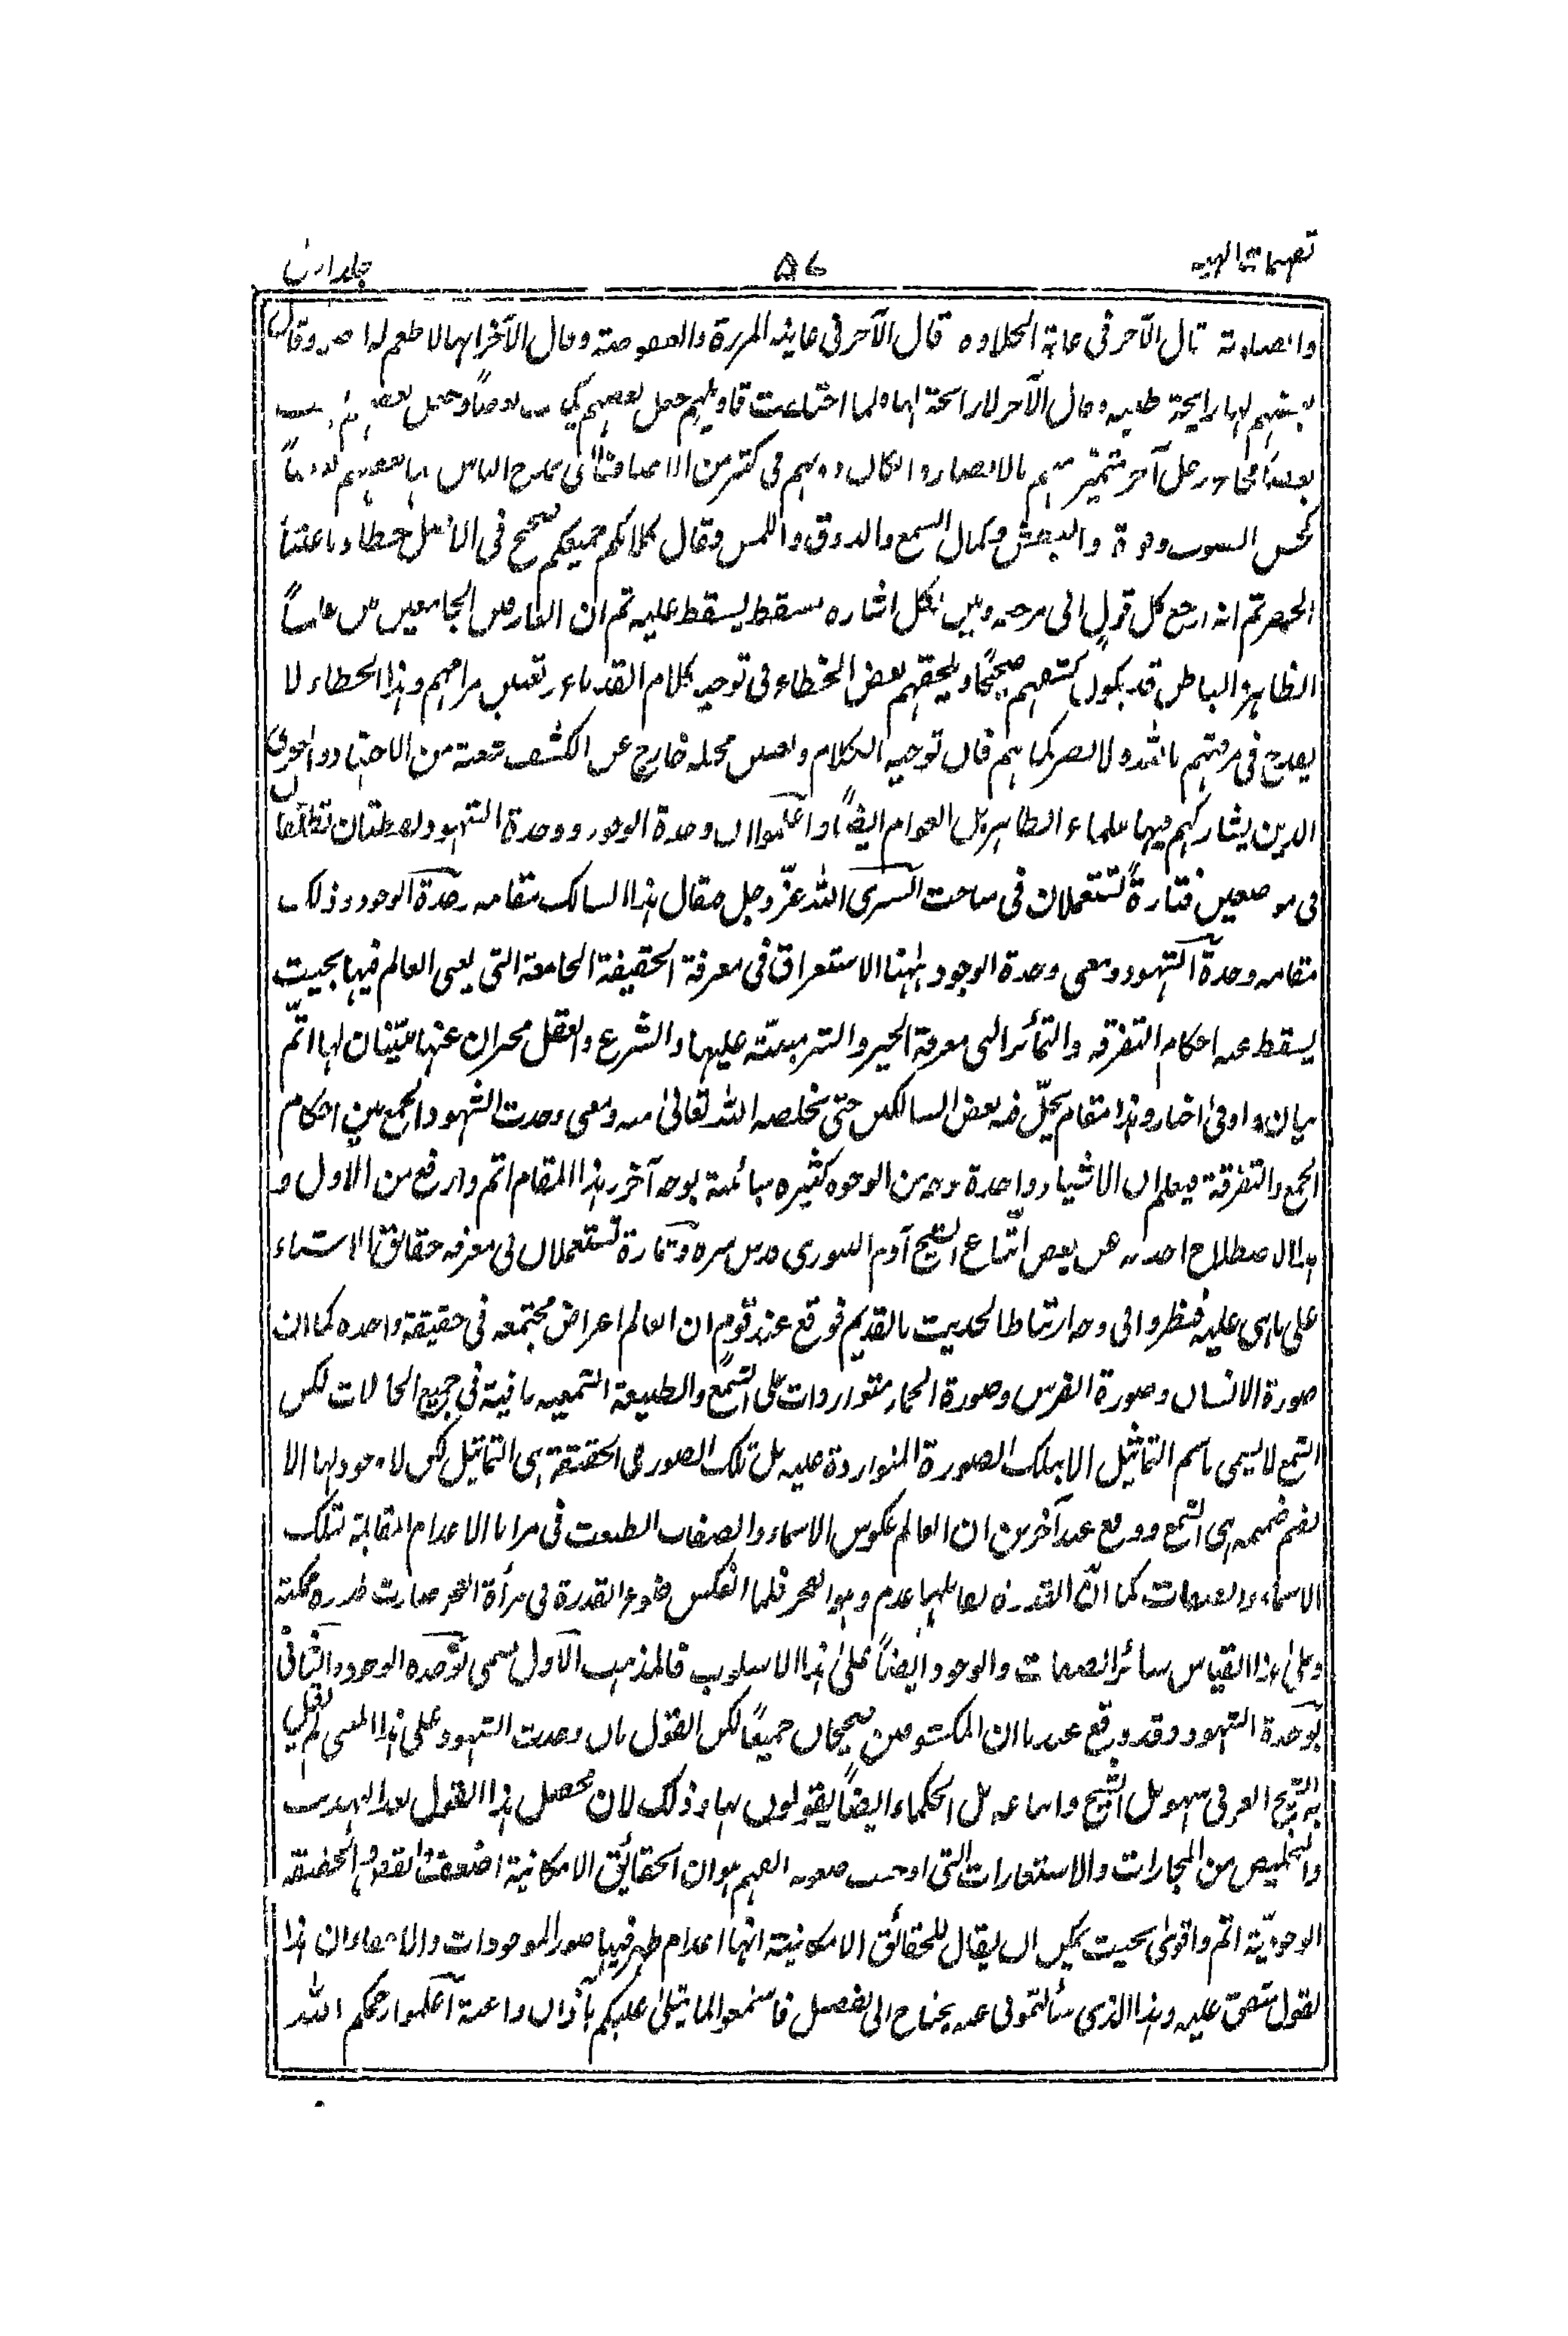 تفهيمات الهيه ٥٤ جلد اول
قال الآخر فى غاية الحلاوة قال الآخر فى غاية المرارة والعفوصة وقال الآخر انها لا طعم لها وقال
بعضهم لها رايحة طيبة وقال الآخر لا رايحة لها ولما اختلفت اقاويلهم جعل بعضهم يكذب بعضاً وجعل بعضهم
بعضاً فجاء رجل آخر متميز منهم بالابصار والكمال دونهم فى كثير من الاوصاف التى يمدح الناس بها بعضهم بعضاً
وكمال السمع والذوق واللمس وقال كلامكم جميعكم صحيح فى الاصل خطاء باعتبار
الحصر ثم انه ارجع كل قول الى مرجعه وبين لكل اشارة مسقط يسقط عليه ثم ان العارفين الجامعين بين علمى
الظاهر والباطن قد يكون كشفهم صحيحًا ويلحقهم بعض الخطاء فى توجيه كلام القدماء وتعيين مرامهم وهذا الخطاء لا
يقدح فى مرتبتهم بالله ولا لبصر كما هم فان توجيه الكلام وتعيين محمله خارج عن الكشف شعبة من الاجتهاد والتحرى
الذين يشاركهم فيها علماء الظاهر بل العوام ايضاً واعلموا ان وحدة الوجود ووحدة الشهود لفظتان تطلقان
فى موضعين فتارةً تستعملان فى مباحث السير الى الله عز وجل فيقال هذا السالك مقامه وحدة الوجود وذلك
مقامه وحدة الشهود ومعنى وحدة الوجود ههنا الاستغراق فى معرفة الحقيقة الجامعة التى يعى العالم فيها بحيث
يسقط عنه احكام التفرقة والتمائز التى معرفة الخير والشر مبنية عليها والشرع والعقل مخبران عنها مبينان لها اتم
بيان واوفى اخبار وهذا مقام يحل فيه بعض السالكين حتى يخلصه الله تعالى منه ومعنى وحدت الشهود الجمع بين احكام
الجمع والتفرقة فيعلم ان الاشياء واحدة بوجه من الوجوه كثيره مبائنة بوجه آخر وهذا المقام اتم وارفع من الاول و
هذا الاصطلاح اخذته عن بعض اتباع الشيخ آدم البنورى قدس سره وتارة تستعملان فى معرفه حقائق الاشياء
على ما هى عليه فنظروا فى وجه ارتباط الحديث بالقديم فوقع عند قوم ان العالم اعراض مجتمعه فى حقيقة واحده كما ان
صورة الانسان وصورة الفرس وصورة الحمار متواردات على الشمع والطبيعة الشمعيه باقية فى جميع الحالات لكن
الشمع لا يسمى باسم التماثيل الا بتلك الصورة المتواردة عليه بل تلك الصور فى الحقيقة هى التماثيل لكن لا وجود لها الا
بضم ضميمه هى الشمع ووقع عند آخرين ان العالم عكوس الاسماء والصفات انطبعت فى مرايا الاعدام المقابلة لتلك
الاسماء والصفات كما ان القدرة يقابلها عدم وهو العجز فلما انعكس ضوء القدرة فى مرأة العجز صارت قدرة ممكنة
وعلى هذا القياس سائر الصفات والوجود ايضاً على هذا الاسلوب فالمذهب الاول يسمى بوحدة الوجود والثانى
بوحدة الشهود وقد وقع عندنا ان المكشوفين صحيحان جميعًا لكن القول بان وحدت الشهود على هذا المعنى لم يقل
به الشيخ العربى سهو بل الشيخ واتباعه بل الحكماء ايضاً يقولون بها وذلك لان محصل هذا القول بعد التهذيب
والتخليص من المجازات والاستعارات التى اوجبت صعوبة الفهم هو ان الحقائق الامكانية اضعف وانقص والحقيقة
الوجوبية اتم واقوى بحيث يمكن ان يقال للحقائق الامكانية انها اعدام ظهر فيها صور الموجودات ان هذا
القول متفق عليه وهذا الذى سألتمونى عنه يحتاج الى تفصيل فاستمعوا لما يتلى عليكم بآذان واعية اعلموا رحمكم الله